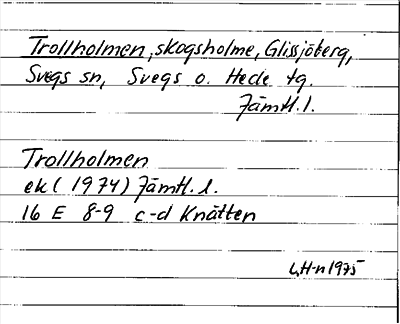 Trollholmen, skogsholme, Glissjöberg,
Svegs sn, Svegs o. Hede tg.
Jämtl. l.
Trollholmen
ek (1974) Jämtl. l.
16 E 8-9 c-d Knätten
L,H-n 1975